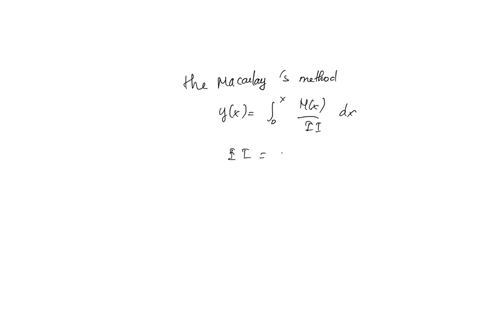 the Macaulay's method
y(x) = ∫₀ˣ M(x)/II dx
II = .